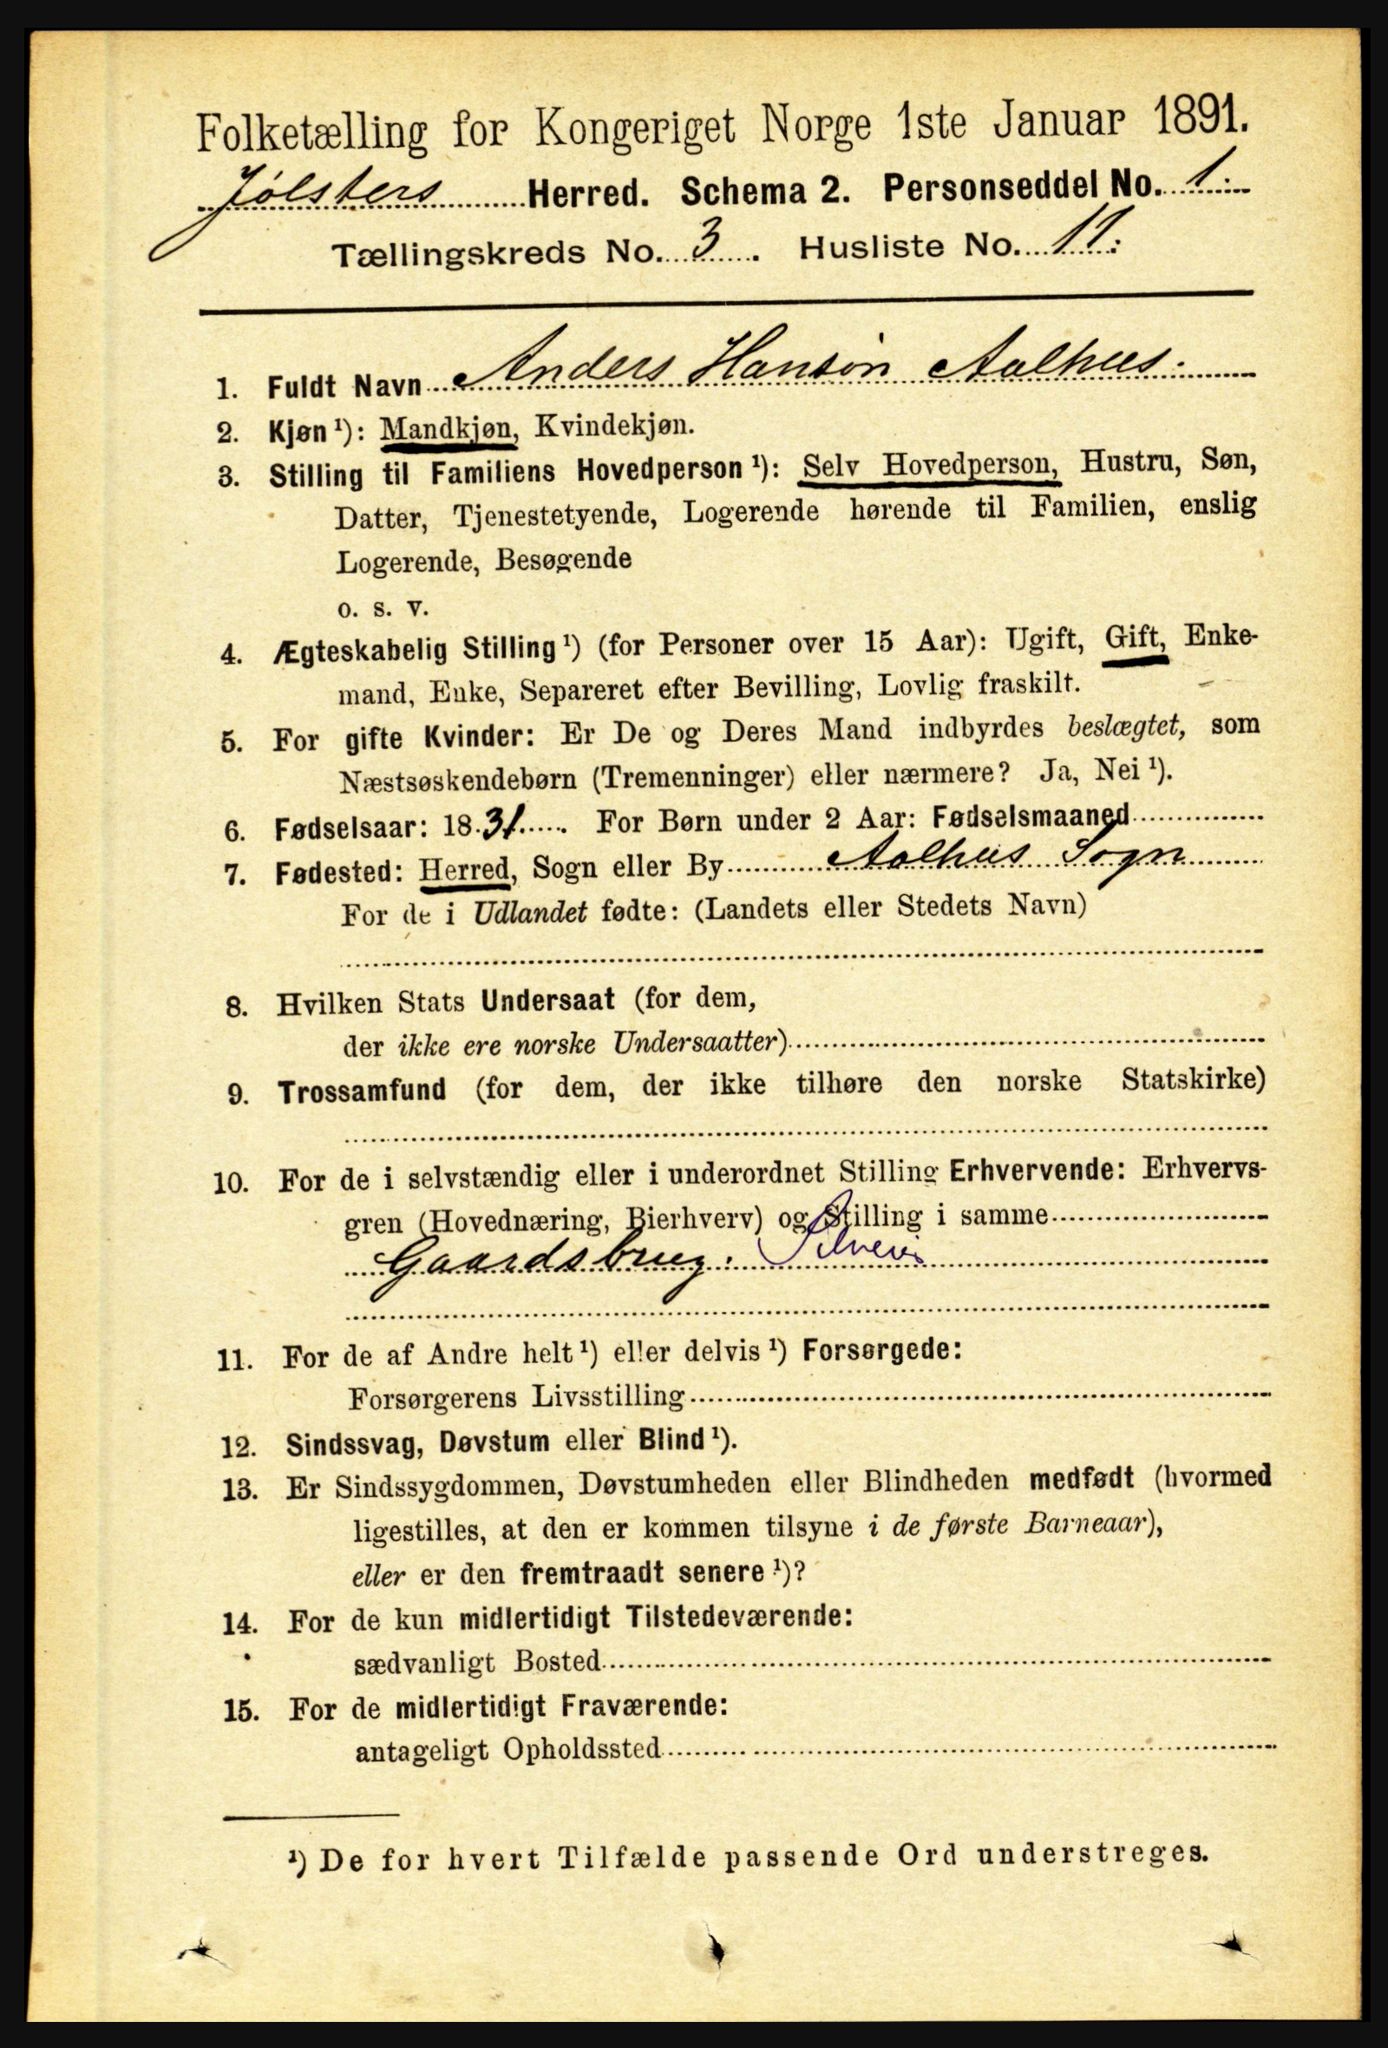 Folketælling for Kongeriget Norge 1ste Januar 1891.
Jølsters Herred. Schema 2. Personseddel No. 1.
Tællingskreds No. 3. Husliste No. 11.
1. Fuldt Navn Anders Hansøn Aalhus.
2. Kjøn¹): Mandkjøn, Kvindekjøn.
3. Stilling til Familiens Hovedperson¹): Selv Hovedperson, Hustru, Søn,
Datter, Tjenestetyende, Logerende hørende til Familien, enslig
Logerende, Besøgende
o. s. v.
4. Ægteskabelig Stilling¹) (for Personer over 15 Aar): Ugift, Gift, Enke-
mand, Enke, Separeret efter Bevilling, Lovlig fraskilt.
5. For gifte Kvinder: Er De og Deres Mand indbyrdes beslægtet, som
Næstsøskendebørn (Tremenninger) eller nærmere? Ja, Nei¹).
6. Fødselsaar: 1831. For Børn under 2 Aar: Fødselsmaaned
7. Fødested: Herred, Sogn eller By Aalhus Sogn
For de i Udlandet fødte: (Landets eller Stedets Navn)
8. Hvilken Stats Undersaat (for dem,
der ikke ere norske Undersaatter)
9. Trossamfund (for dem, der ikke tilhøre den norske Statskirke)
10. For de i selvstændig eller i underordnet Stilling Erhvervende: Erhvervs-
gren (Hovednæring, Bierhverv) og Stilling i samme
Gaardsbrug. Selveier
11. For de af Andre helt¹) eller delvis¹) Forsørgede:
Forsørgerens Livsstilling
12. Sindssvag, Døvstum eller Blind¹).
13. Er Sindssygdommen, Døvstumheden eller Blindheden medfødt (hvormed
ligestilles, at den er kommen tilsyne i de første Barneaar),
eller er den fremtraadt senere¹)?
14. For de kun midlertidigt Tilstedeværende:
sædvanligt Bosted
15. For de midlertidigt Fraværende:
antageligt Opholdssted
¹) De for hvert Tilfælde passende Ord understreges.